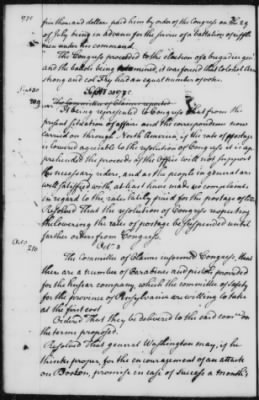 five thousand dollars paid them by order of the Congress on the 29
of July being in advance for the service of a battalion of rifle
men under his command.
The Congress proceeded to the election of a brigadier gen.l
and the ballots being examined, it was found that Colonel Arm
strong and col. Fry had an equal number of votes.
Sept. 30
The Committee of Claims reported
It being represented to Congress that from the
present situation of affairs and the correspondence now
carried on through North America if the rate of postage
is lowered agreeable to the resolution of Congress it is ap
prehended the proceeds of the Office will not support
the necessary riders, and as the people in general are
well satisfied with, at least have made no complaints
in regard to the rates lately paid for the postage of letters
Resolved That the resolution of Congress respecting
the lowering the rates of postage be suspended until
farther orders from Congress.
Oct. 2
The Committee of Claims informed Congress, that
there are a number of Carabines and pistols provided
for the hussar company, which the committee of safety
for the province of Pensylvania are willing to take
at the first cost
Ordered That they be delivered to the said com.ee on
the terms proposed.
Resolved That general Washington may, if he
thinks proper, for the encouragement of an attack
on Boston, promise in case of success a month's